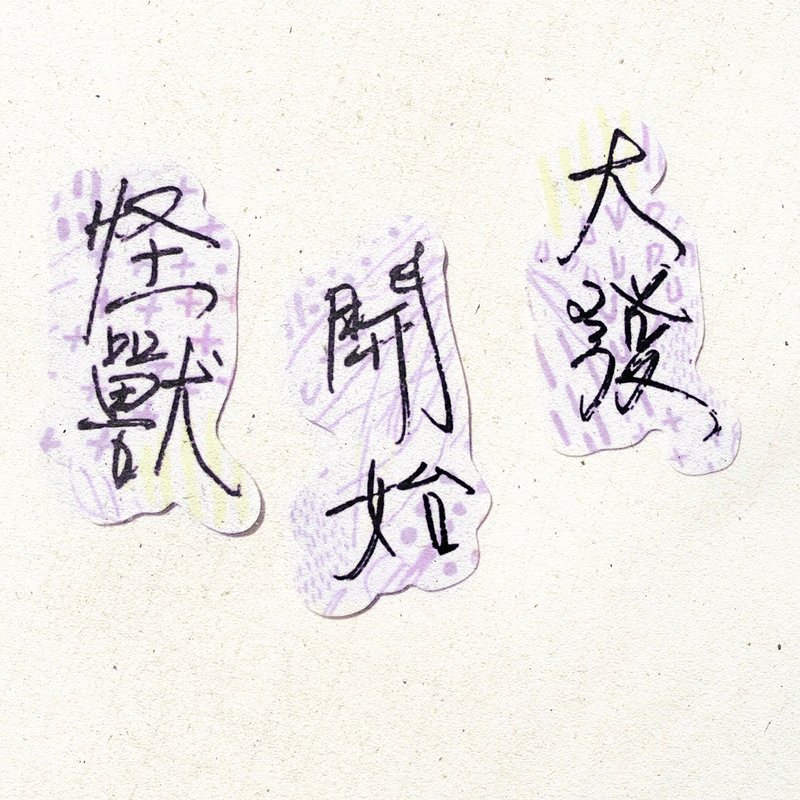 怪獸
開始
大發